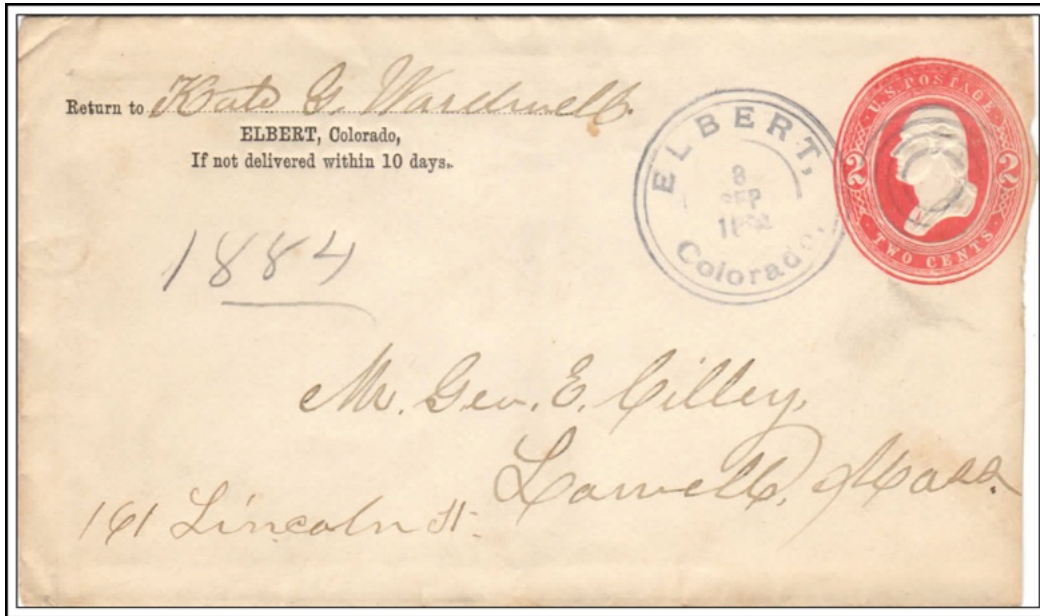 Return to Kate G. Wardwell.
ELBERT, Colorado,
If not delivered within 10 days.
ELBERT,
8
SEP
Colorado,
U.S. POSTAGE
2 2
TWO CENTS
1884
Mr. Geo. E. Cilley,
Lowell, Mass.
161 Lincoln St.